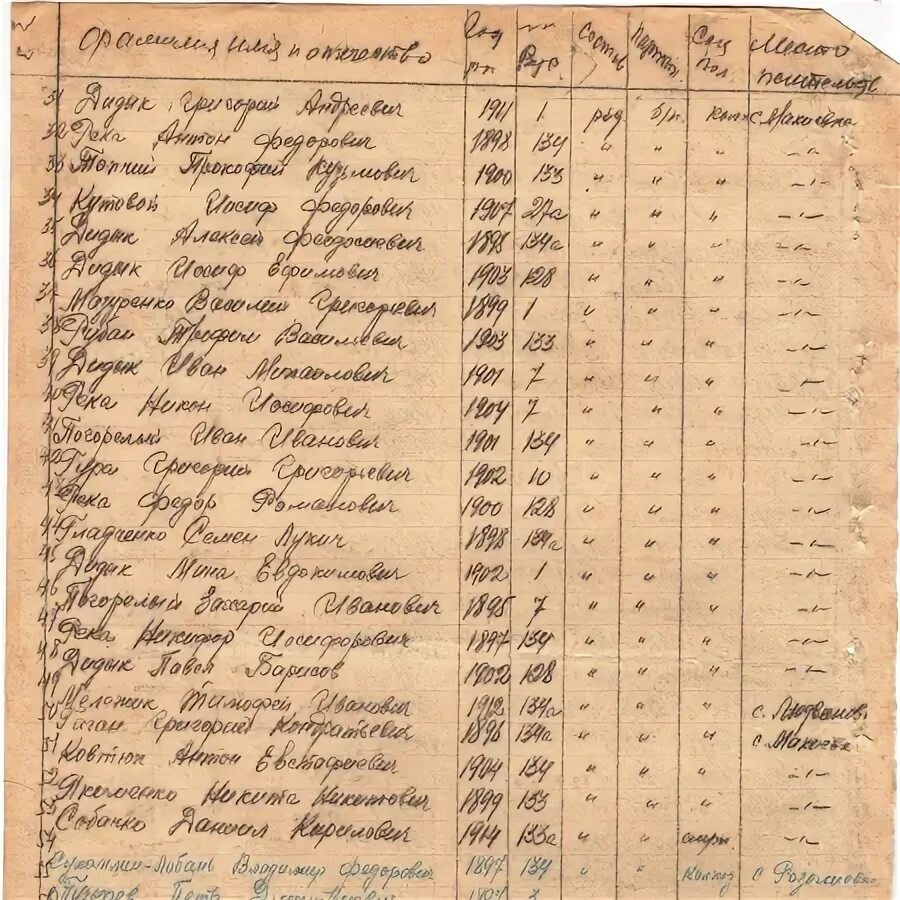 Фамилия имя и отчество Год рп № Вус. Состав Партт Соц пол. Место жительств
31 Дидык Григорий Андреевич 1911 1 ряд б/п. колх с. Макеевка
32 Гека Антон Федорович 1898 134 " " " -"-
33 Топчий Прокофий Кузьмович 1900 133 " " " -"-
34 Кутовой Иосиф Федорович 1907 27а " " " -"-
35 Дидык Алексей Феодосиевич 1898 134а " " " -"-
36 Дидык Иосиф Ефимович 1903 128 " " " -"-
37 Мазуренко Василий Григорьевич 1899 1 " " " -"-
38 Рубан Трофим Васильевич 1903 133 " " " -"-
39 Дидык Иван Михайлович 1901 7 " " " -"-
40 Гека Никон Иосифович 1904 7 " " " -"-
41 Погорелый Иван Иванович 1901 134 " " " -"-
42 Гура Григорий Григорьевич 1902 10 " " " -"-
43 Гека Федор Романович 1900 128 " " " -"-
44 Гладченко Семен Лукич 1898 134а " " " -"-
45 Дидык Мина Евдокимович 1902 1 " " " -"-
46 Погорелый Захарий Иванович 1895 7 " " " -"-
47 Гека Никифор Иосифорович 1897 134 " " " -"-
48 Дидык Павел Барисов 1902 128 " " " -"-
49 Мележик Тимофей Иванович 1912 134а " " "
50 Гаган Григорий Контратьевич 1896 134а " " "
51 Ковтюх Антон Евстафиевич 1904 134 " " " -"-
52 Якименко Никита Никитович 1899 133 " " " -"-
53 Собанко Даниил Кирилович 1914 133а " " -"-
54
55 Сухомлин-Лобань Владимир Федорович 1897 134 " " колхоз с
Петь